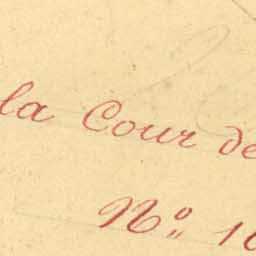 la Cour de
N° 10